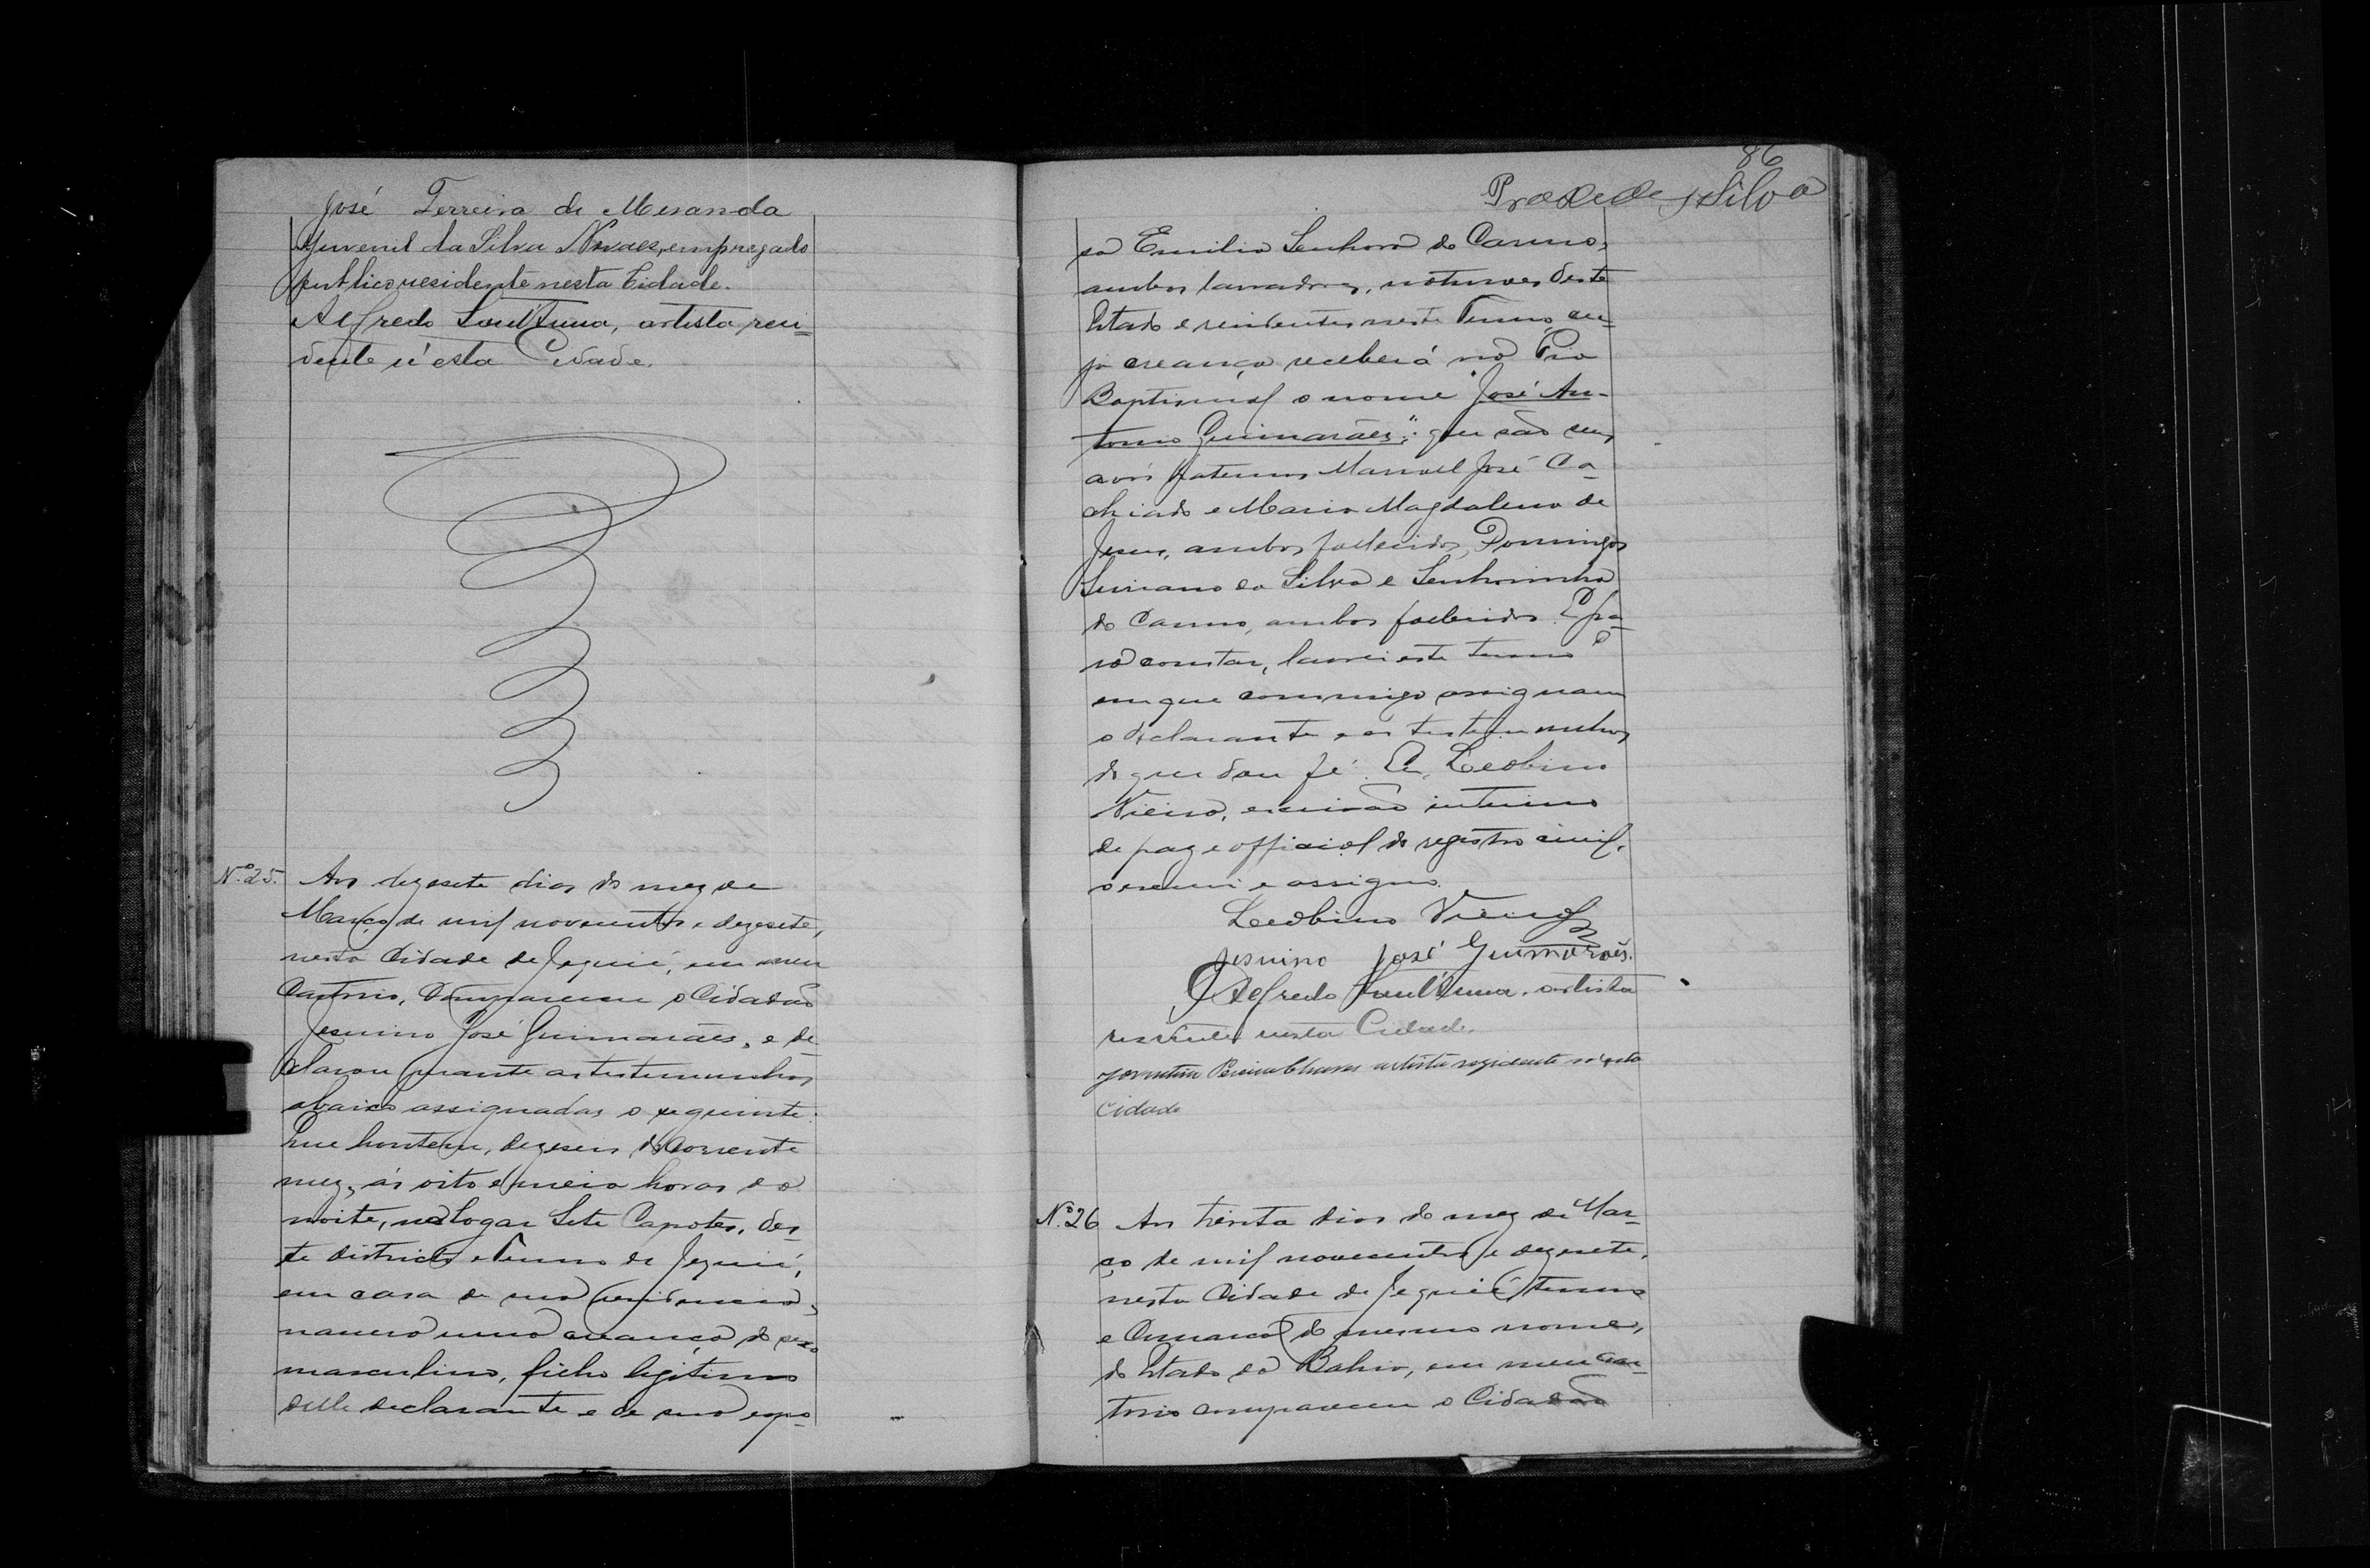 José Ferreira de Meranda
Juvenil da Silva Novaes, empregado
publico residente nesta Cidade.
Alfredo Sant'Anna, artista, resi-
dente n'esta Cidade.
Nº 25. Aos dezesete dias do mez de
Março de mil novecentos e dezesete,
nesta Cidade de Jequié, em meu
Cartorio, compareceu o Cidadão
Jesuino José Guimarães, e de-
clarou perante as testemunhas
abaixo assignadas o seguinte:
Que hontem, dezeseis do corrente
mez, ás oito e meia horas da
noite, no logar Sete Capotes, des-
te districto e Termo de Jequié,
em casa de sua residencia,
nasceu uma creança do sexo
masculino, filho legitimo
delle declarante e de sua espo-
86
Praxedes Silva
sa Emilia Senhora do Carmo,
ambos lavradores, naturaes deste
Estado e residentes neste Termo, cu-
ja creança receberá na Pia
Baptismal o nome "José An-
tonio Guimarães": que são seus
avós paternos Manoel José Ca-
chiado e Maria Magdalena de
Jesus, ambos fallecidos, Domingos
Suriano da Silva e Senhorinha
do Carmo, ambos fallecidos. E pa-
ra constar, lavrei este termo
em que commigo assignam
o declarante e as testemunhas,
do que dou fé. Eu, Leobino
Vieira, escrivão interino
de paz e official do registro civil,
o escrevi e assigno.
Leobino Vieira
Jesuino José Guimarães.
Alfredo Sant'Anna. artista
residente nesta Cidade.
Pereira Chaves artista rezidente n'esta
Cidade
Nº 26 Aos trinta dias do mez de Mar-
ço de mil novecentos e dezesete,
nesta Cidade de Jequié, termo
e Comarca do mesmo nome,
do Estado da Bahia, em meu car-
torio compareceu o Cidadão